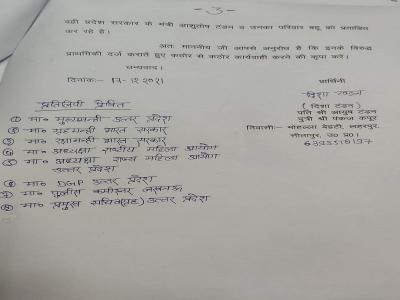 - 3 -
वही प्रदेश सरकार के मंत्री आशुतोष टंडन व उनका परिवार बहू को प्रताड़ित
कर रहे है।
अतः माननीय जी आपसे अनुरोध है कि इनके विरुद्ध
प्राथमिकी दर्ज कराते हुए कठोर से कठोर कार्यवाही करने की कृपा करें।
धन्यवाद।
दिनांकः- 17-12-2021
प्रार्थिनी
दिशा टण्डन
(दिशा टंडन)
पति श्री आयुष टंडन
पुत्री श्री पंकज कपूर
निवासीः- मोहल्ला बेहटी, लहरपुर,
सीतापुर, उ0 प्र0।
प्रतिलिपी प्रेषित
① मा० मुख्यमन्त्री उत्तर प्रदेश
② मा० गृहमन्त्री भारत सरकार
③ मा० रक्षामन्त्री भारत सरकार
④ मा० अध्यक्षा राष्ट्रीय महिला आयोग
⑤ मा० अध्यक्षा राज्य महिला आयोग
उत्तर प्रदेश
⑥ मा० DGP उत्तर प्रदेश
⑦ मा० पुलिस कमीश्नर लखनऊ
⑧ मा० प्रमुख सचिव (गृह) उत्तर प्रदेश